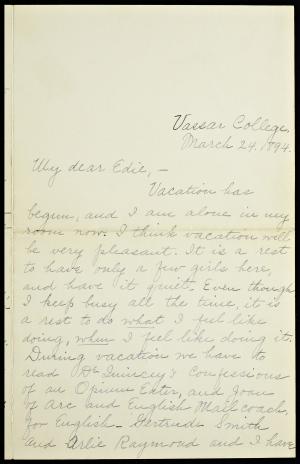 Vassar College,
March 24, 1894.
My dear Edie, -
Vacation has
begun, and I am alone in my
room now. I think vacation will
be very pleasant. It is a rest
to have only a few girls here,
and have it quiet. Even though
I keep busy all the time, it is
a rest to do what I feel like
doing, when I feel like doing it.
During vacation we have to
read De Quincey's Confessions
of an Opium Eater, and Joan
of Arc and English Mail coach,
for English. Gertrude Smith
and Arlie Raymond and I have